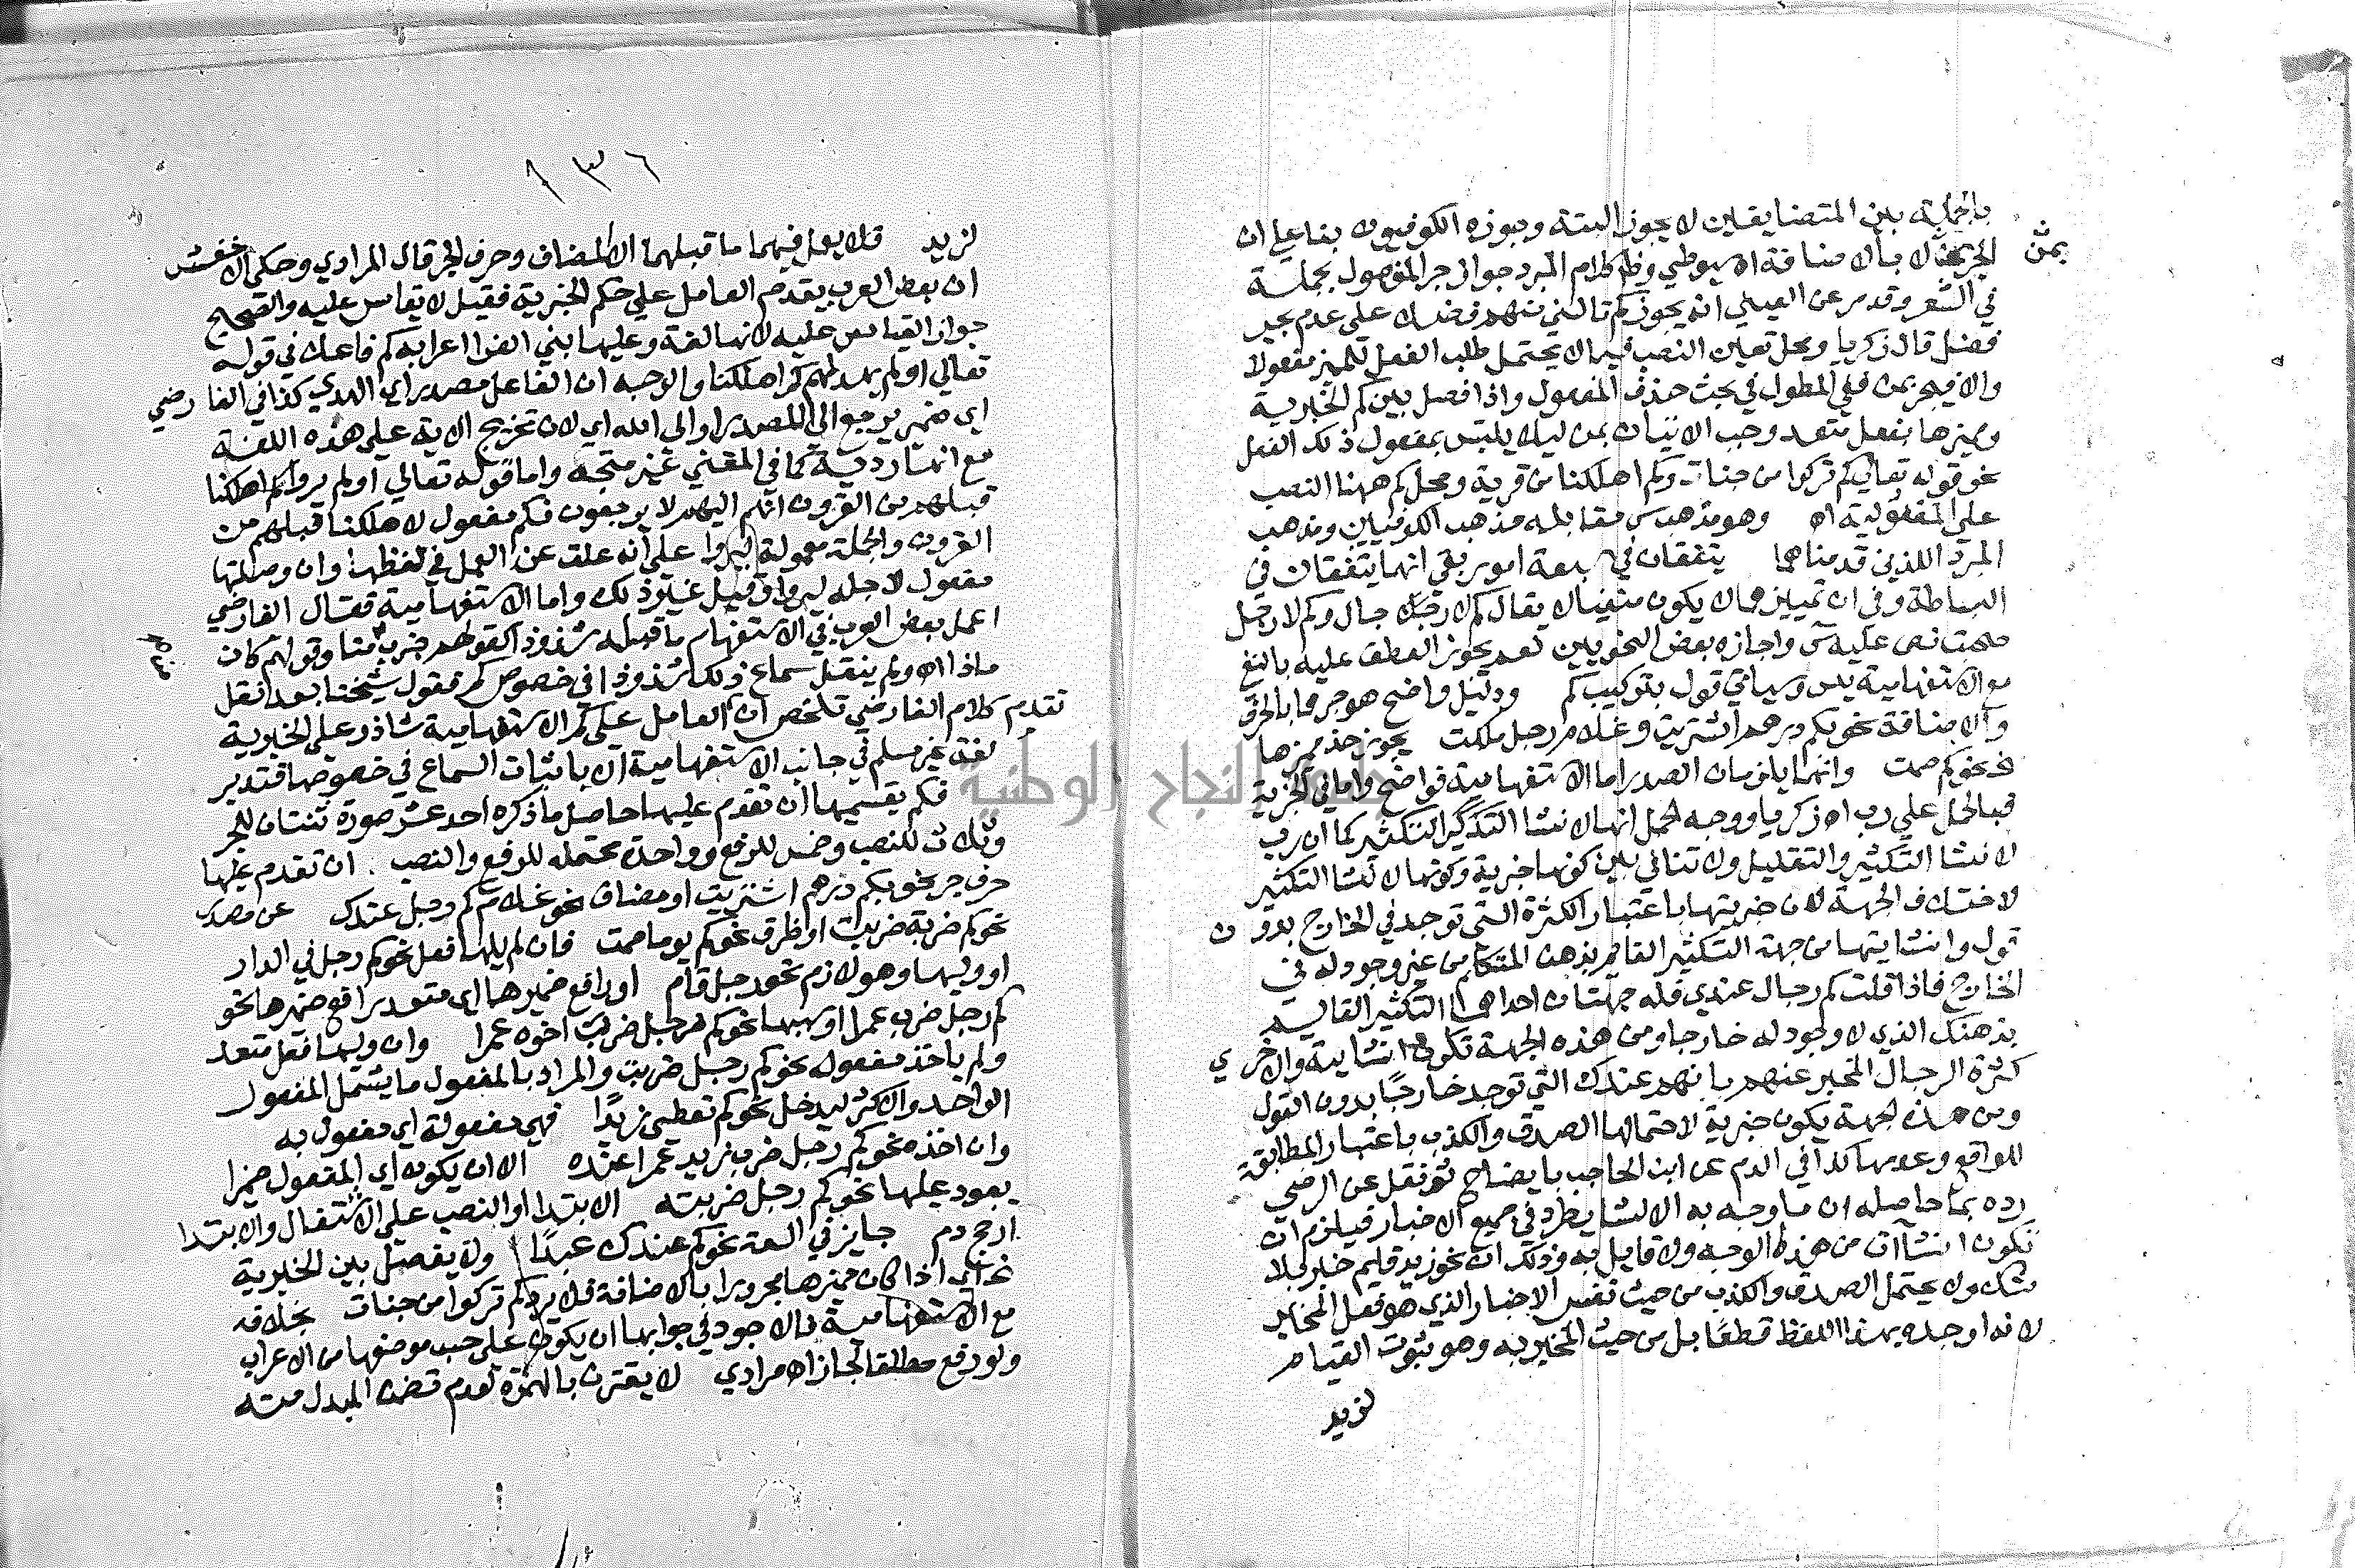 بالجملة بين المتضايفين لا يجوز البتة وجوزه الكوفيون بناء على ان
الجر بمن لا بالاضافة اه سيوطي وظ كلام المبرد جواز جر المفصول بجملة
بمن
في الشعر وقد مر عن العيني انه يجوز كم نالني منهم فضلا على عدم بجر
فضل قال زكريا ومحل تعين النصب فيما لا يحتمل طلب الفعل للمميز مفعولا
والا فيجر بمن ففي المطول في بحث حذف المفعول واذا فصل بين كم الخبرية
ومميزها بفعل متعد وجب الاتيان بمن ليلا يلتبس بمفعول ذلك الفعل
نحو قوله تعالى كم تركوا من جنات وكم اهلكنا من قرية ومحل كم ههنا النصب
على المفعولية اه وهو مذهب س مقابله مذهب الكوفيين ومذهب
المبرد اللذين قدمناهما يتفقان في سبعة امور بقي انهما يتفقان في
البساطة وفي ان تمييزهما لا يكون منفيا لا يقال كم لا رجلا جال وكم لا رجل
صحت نص عليه س واجازه بعض النحويين نعم يجوز العطف عليه بالنفي
مع الاستفهامية يس وسياتي قول بتركيب كم ودليل واضح هو جرهما بالحرف
والاضافة نحو بكم درهم اشتريت وغلام رجل ملكت يجوز حذف مميزها
نحو كم صمت وانهما يلزمان الصدر اما الاستفهامية فواضح واما في الخبرية
فبالحمل على رب اه زكريا ووجه الحمل انها لانشا التكثير كما ان رب
لانشا التكثير والتقليل ولا تنافي بين كونها خبرية وكونها لانشا التكثير
لاختلاف الجهة لان خبريتها باعتبار الكثرة التي توجد في الخارج بدون
قول وانشايتها من جهة التكثير القايم بذهن المتكلم من غير وجود له في
الخارج فاذا قلت كم رجال عندي فله جهتان احداهما التكثير القايم
بذهنك الذي لا وجود له خارجا ومن هذه الجهة تكون انشاية والاخرى
كثرة الرجال المخبر عنهم بانهم عندك التي توجد خارجا بدون القول
ومن هذه الجهة يكون خبرية لاحتمالها الصدق والكذب باعتبار المطابقة
للواقع وعدمها كذا في الدم عن ابن الحاجب بايضاح ثم نقل عن الرضي
رده بما حاصله ان ما وجه به الانشا يطرد في جميع الاخبار فيلزم ان
تكون انشاآت من هذه الوجه ولا قايل به وذلك ان نحو زيد قايم خبر بلا
شك ولا يحتمل الصدق والكذب من حيث نفس الاخبار الذي هو فعل المخبر
لانه اوجده بهذا اللفظ قطعا بل من حيث المخبر به وهو ثبوت القيام
لزيد
١٣٦
لزيد فلا يعمل فيهما ما قبلهما الا المضاف وحرف الجر قال المرادي وحكى الاخفش
ان بعض العرب يقدم العامل على كم الخبرية فقيل لا يقاس عليه والصحيح
جواز القياس عليه لانها لغة وعليها بني الفرا اعرابه كم فاعلا في قوله
تعالى اولم يهد لهم كم اهلكنا والوجه ان الفاعل مصدر اي الهدي كذا في الفارضي
اي ضمير يرجع الى المصدر او الى الله اي لان تخريج الاية على هذه اللغة
مع انها ردية كما في المغني غير متجه واما قوله تعالى اولم يروا كم اهلكنا
قبلهم من القرون انهم اليهم لا يرجعون فكم مفعول لاهلكنا قبلهم من
القرون والجملة معمولة ليروا على انه علق عن العمل في لفظها وان وصلتها
مفعول لاجله ليروا وقيل غير ذلك واما الاستفهامية فقال الفارضي
اعمل بعض العرب في الاستفهام ما قبله شذوذا كقولهم ضرب منا وقولهم كان
ماذا اه ولم ينقل سماع ذلك شذوذا في خصوص كم فقول شيخنا بعد انقل
تقدم كلام الفارضي تلخص ان العامل على كم الاستفهامية شاذ وعلى الخبرية
لغة غير مسلم في جانب الاستفهامية الا باثبات السماع في خصوصها فتدبر
فكم بقسميها ان تقدم عليها حاصل ما ذكره احد عشر صورة ثنتان للجر
وثلاث للنصب وخمس للرفع وواحدة محتملة للرفع والنصب . ان تقدم عليها
حرف جر نحو بكم درهم اشتريت او مضاف نحو غلام كم رجل عندك عن مصدر
نحو كم ضربة ضربت او ظرف نحو كم يوما صمت فان لم يلها فعل نحو كم رجل في الدار
او وليها وهو لازم نحو رجل قام او رافع ضميرها اي متعد رافع ضميرها نحو
كم رجل ضرب عمرا او سببها نحو كم رجل ضرب اخوه عمرا وان وليها فعل متعد
ولم ياخذ مفعوله نحو كم رجل ضربت والمراد بالمفعول ما يشمل المفعول
الواحد والاكثر ليدخل نحو كم تعطي زيدا فهي مفعولة اي مفعول به
وان اخذه نحو كم رجل ضرب زيد عمرا عنده الا ان يكون اي المفعول ضميرا
يعود عليها نحو كم رجل ضربته الابتدا او النصب على الاشتغال والابتدا
ارجح دم جايز في السعة نحو كم عندك عبدا ولا يفصل بين الخبرية
نحو اي اذا كان مميزها مجرورا بالاضافة فلا يرد كم تركوا من جنات بخلافه
مع الاستفهامية فالاجود في جوابها ان يكون على حسب موضعها من الاعراب
ولو رفع مطلقا لجاز اه مرادي لا يقترن بالهمزة لعدم تضمن المبدل منه